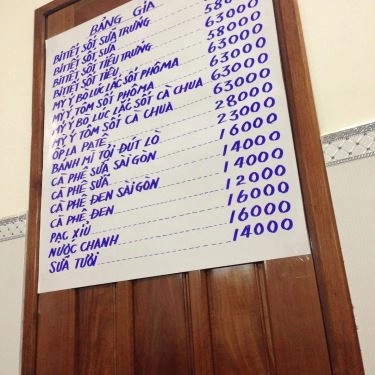 BẢNG GIA
BÍTTẾT SỐT, SỮA TRỨNG
BÍTTẾT SỐT, SỮA 58000
BÍTTẾT SỐT, TIÊU TRỨNG 63000
BÍTTẾT SỐT TIÊU 58000
MỲ Ý BÒ LÚC LẮC SỐT PHÔMA 63000
MỲ Ý TÔM SỐT PHÔMA 63000
MỲ Ý BÒ LÚC LẮC SỐT CÀ CHUA 63000
MỲ Ý TÔM SỐT CÀ CHUA 63000
ỐP LA PATÊ 28000
BÁNH MÌ TỎI ĐÚT LÒ 23000
CÀ PHÊ SỮA SÀI GÒN 16000
CÀ PHÊ SỮA 14000
CÀ PHÊ ĐEN SÀI GÒN 14000
CÀ PHÊ ĐEN 12000
PẠC XỈU 16000
NƯỚC CHANH 16000
SỮA TƯƠI 14000